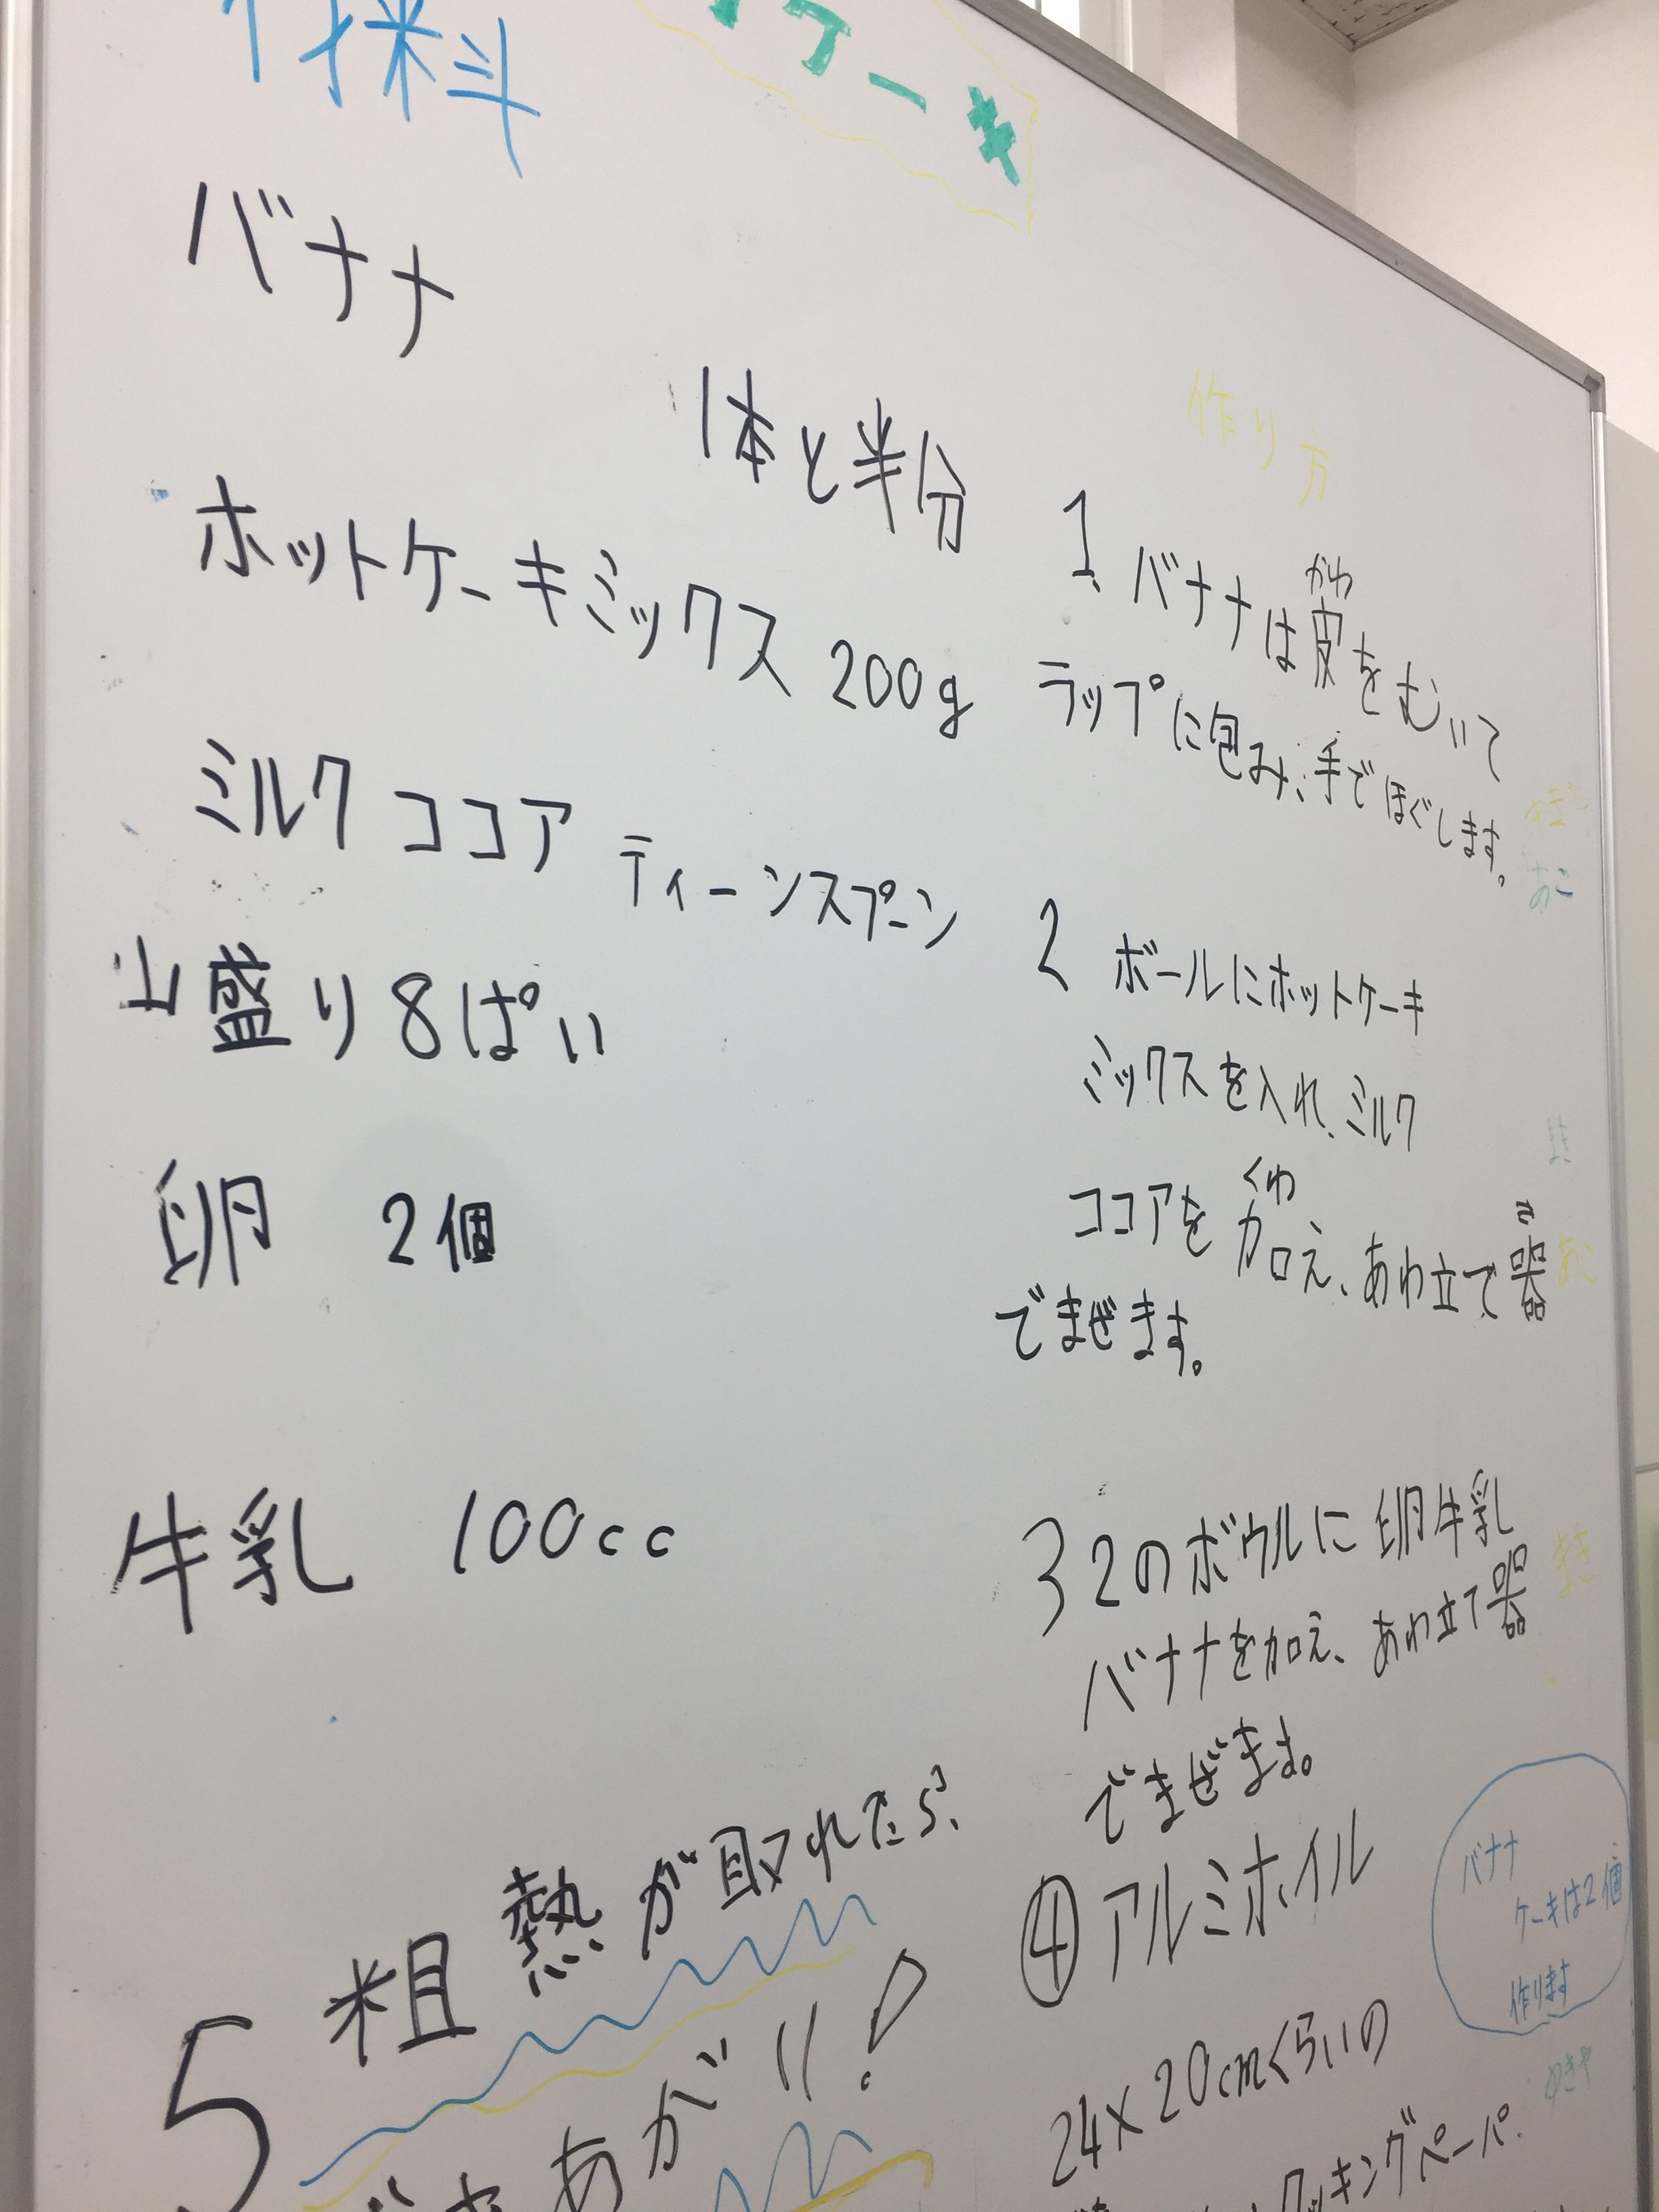 材料
ケーキ
バナナ
1本と半分
ホットケーキミックス 200g
ミルクココア ティーンスプーン
山盛り8ぱい
卵 2個
牛乳 100cc
作り方
1. バナナは皮をむいて
かわ
ラップに包み、手でほぐします。
2 ボールにホットケーキ
ミックスを入れ、ミルク
くわ
ココアを加え、あわ立て器
でまぜます。
3 2のボウルに卵牛乳
バナナを加え、あわ立て器
でまぜます。
④アルミホイル
24×20cmくらいの
クッキングペーパ
バナナ
ケーキは2個
作ります
5 粗熱が取れたら、
あがり!